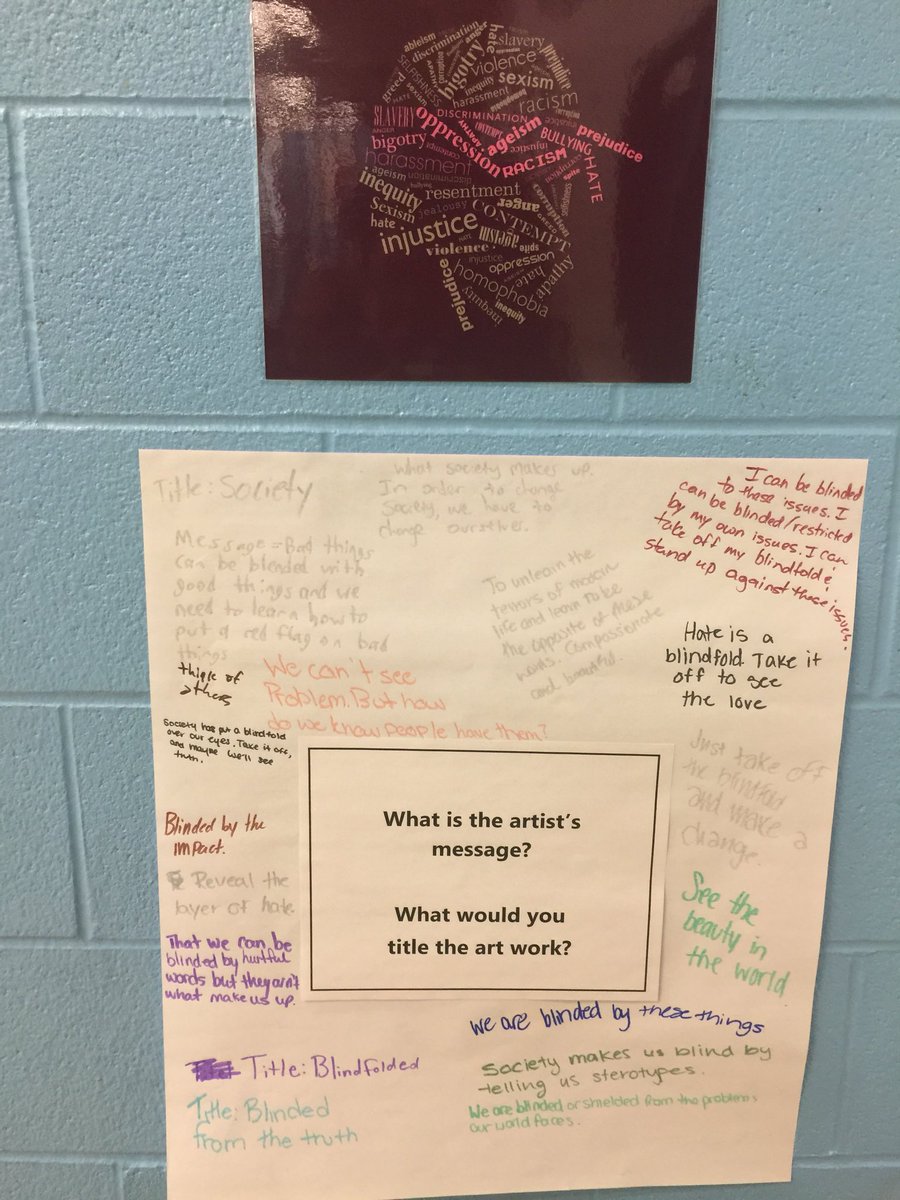 ableism
discrimination
hate
slavery
prejudice
greed
SELFISHNESS
bigotry
violence
sexism
inequity
harassment
racism
HATE
sexism
SLAVERY
DISCRIMINATION
oppression
CONTEMPT
ageism
BULLYING
prejudice
ANGER
bigotry
APATHY
injustice
RACISM
HATE
harassment
contempt
discrimination
spite
ageism
bullying
resentment
corruption
selfishness
inequity
anger
Sexism
jealousy
CONTEMPT
hate
injustice
HATE
ageism
spite
violence
injustice
oppression
prejudice
homophobia
hate
apathy
inequity
inequity
Title: Society
What society makes up.
In order to change
Society, we have to
change ourselves.
I can be blinded
to these issues. I
can be blinded/restricted
by my own issues. I can
take off my blindfold &
stand up against these issues.
Message = Bad things
can be blended with
good things and we
need to learn how to
put a red flag on bad
things
To unlearn the
terrors of modern
life and learn to be
the opposite of these
words. Compassionate
and beautiful
Hate is a
blindfold. Take it
off to see
the love
think of
others
We can't see
Problem. But how
do we know people have them?
Society has put a blindfold
over our eyes. Take it off,
and maybe we'll see
truth.
Just take off
the blindfold
and make a
change.
What is the artist's
message?
What would you
title the art work?
Blinded by the
impact.
Reveal the
layer of hate.
See the
beauty in
the world
That we can be
blinded by hurtful
words but they ain't
what make us up.
we are blinded by these things
Title: Blindfolded
Society makes us blind by
telling us sterotypes.
Title: Blinded
from the truth
We are blinded or shielded from the problems
our world faces.